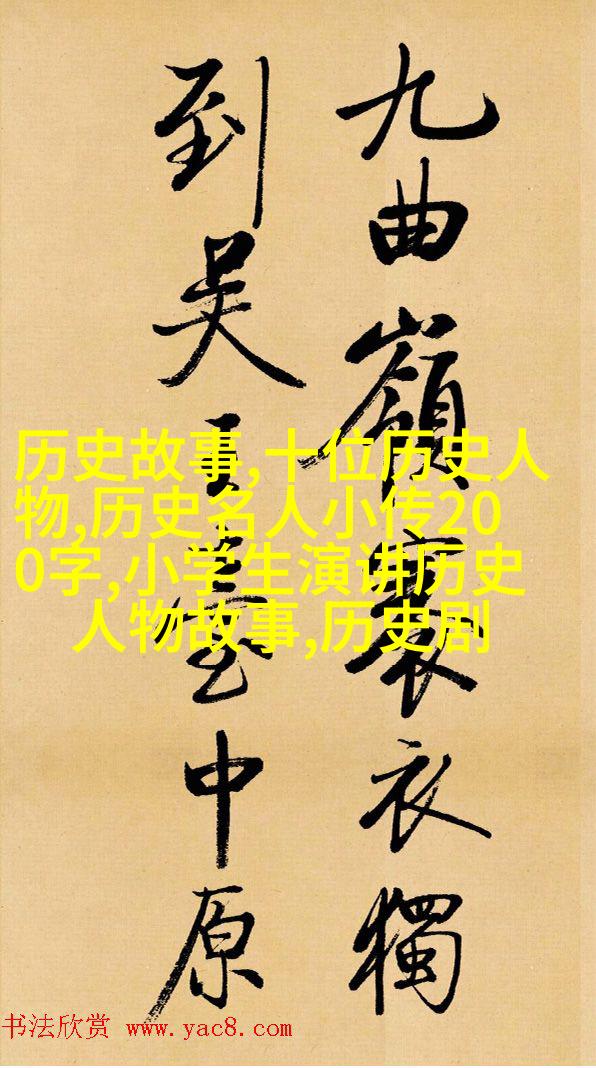 九曲嶺褰衣獨
到吴王臺中原
历史故事,十位历史人
物,历史名人小传20
0字,小学生演讲历史
人物故事,历史剧
书法欣赏 www.yac8.com